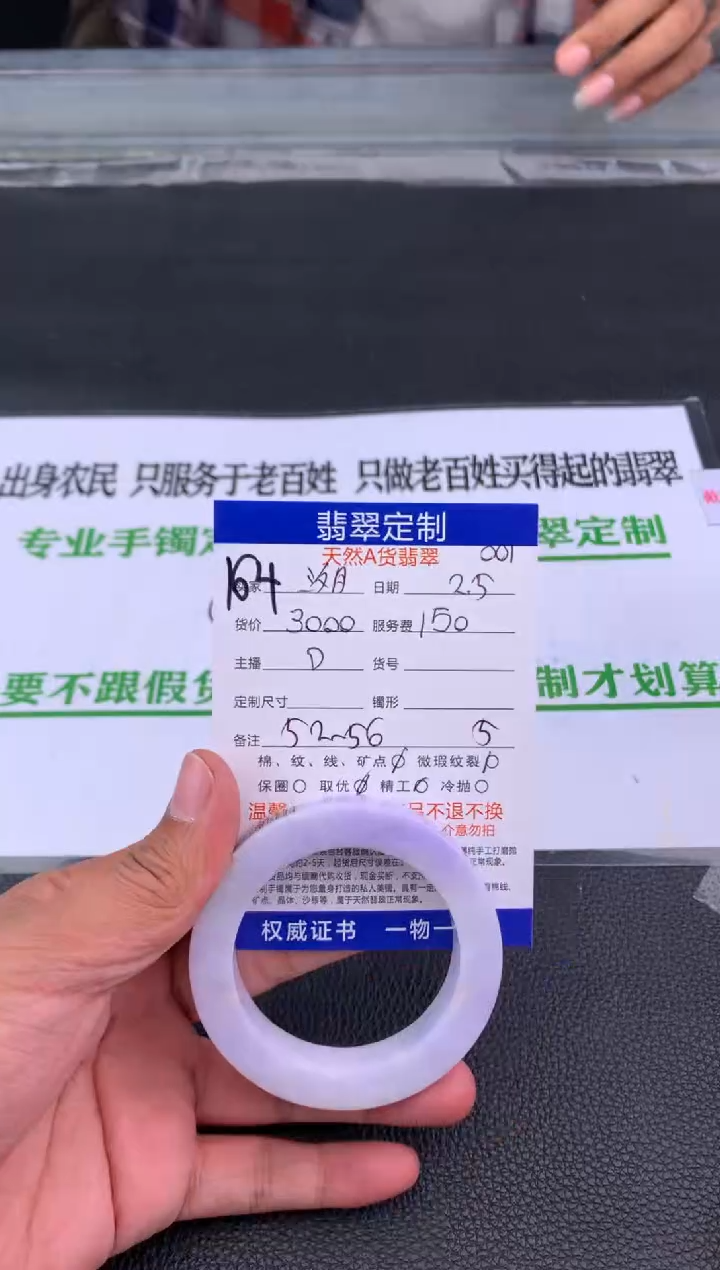 出身农民 只服务于老百姓 只做老百姓买得起的翡翠
专业手镯定
翠定制
要不跟假货
制才划算
翡翠定制
天然A货翡翠 001
164
家 日期 2.5
货价 3000 服务费 150
主播 D 货号
定制尺寸 镯形
备注 52~56 5
棉、纹、线、矿点 微瑕纹裂
保圈 取优 精工 冷抛
温馨 品不退不换
介意勿拍
权威证书 一物一